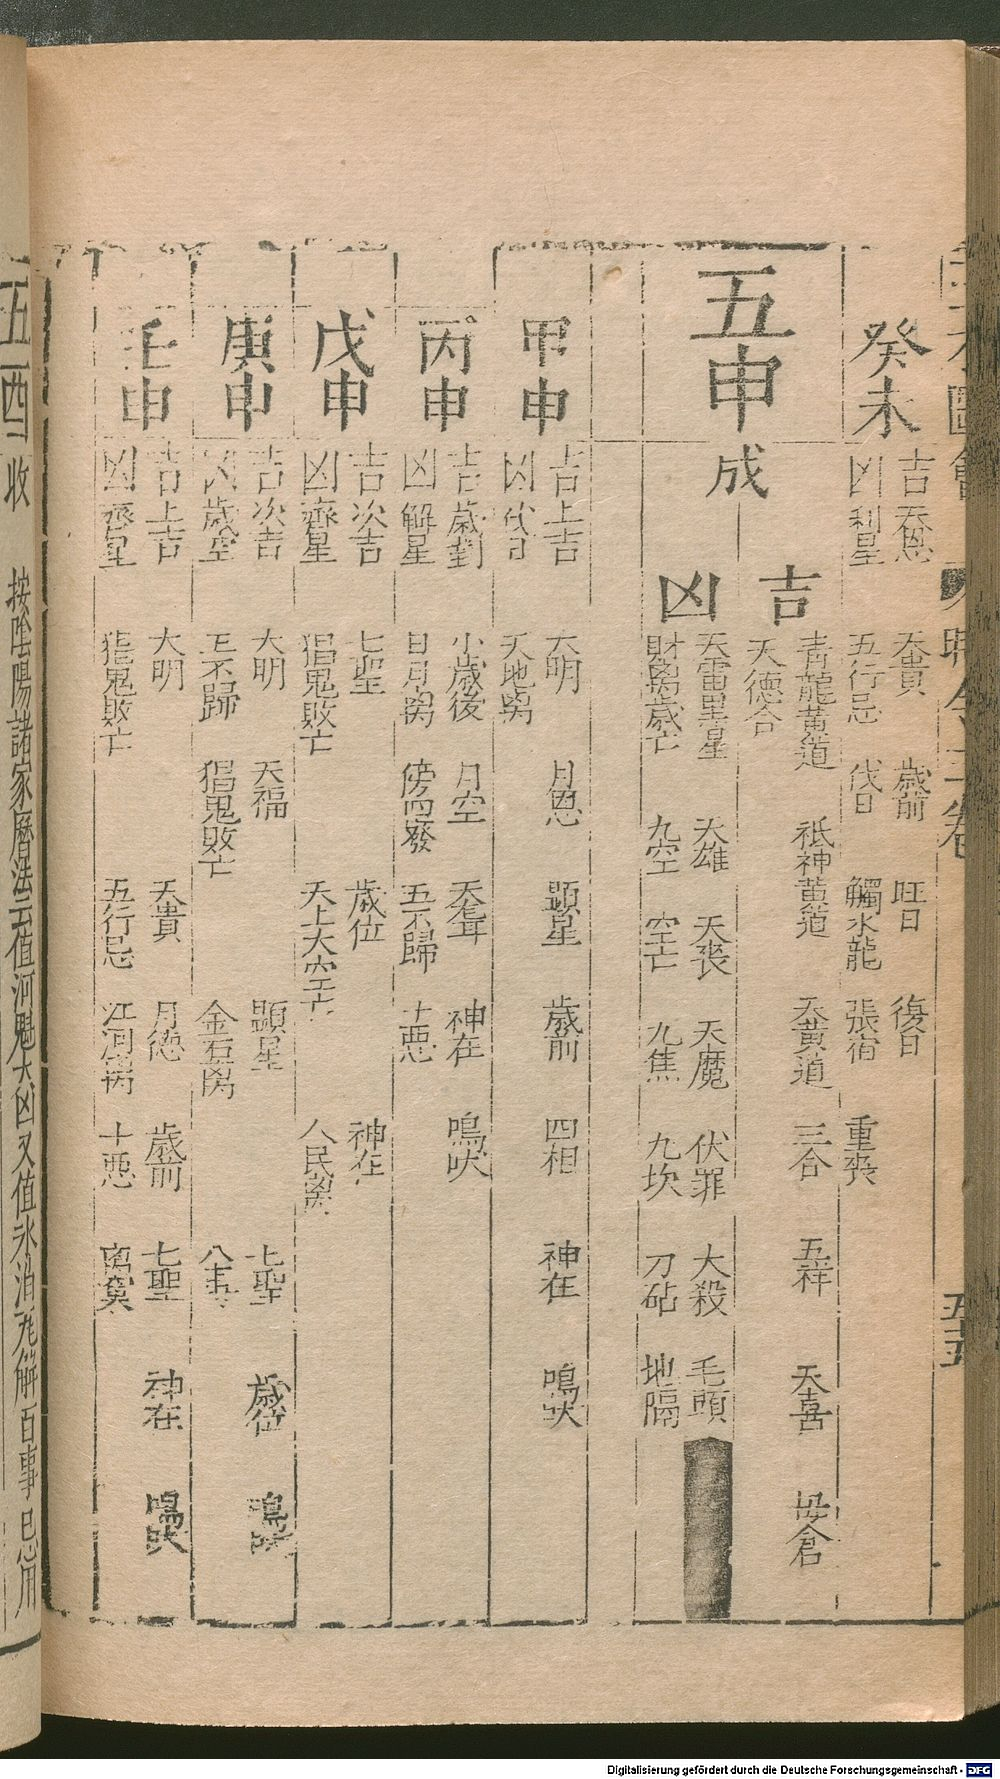 癸未
吉 天恩 天貴 歲前 旺日 復日
凶 利星 五行忌 伐日 觸水龍 張宿 重喪
五申
成
吉
青龍黃道 祇神黃道 天黃道 三合 五祥 天喜 母倉
天德合
凶
天雷黑星 天雄 天喪 天魔 伏罪 大殺 毛頭
財離歲亡 九空 空亡 九焦 九坎 刀砧 地隔
甲申
吉 上吉 大明 月恩 顯星 歲前 四相 神在 鳴吠
凶 伐日 天地離
丙申
吉 歲對 小歲後 月空 天聾 神在 鳴吠
凶 解星 日月離 傍四廢 五不歸 十惡
戊申
吉 次吉 七聖 歲位 神在
凶 齊星 猖鬼敗亡 天上大空亡 人民離
庚申
吉 次吉 大明 天福 顯星 七聖 歲位 鳴吠
凶 歲空 五不歸 猖鬼敗亡 金石離 八專
壬申
吉 上吉 大明 天貴 月德 歲前 七聖 神在 鳴吠
凶 齊星 猖鬼敗亡 五行忌 江河離 十惡
五酉 收 按陰陽諸家曆法云值河魁大凶又值氷消瓦解百事忌用
Digitalisierung gefördert durch die Deutsche Forschungsgemeinschaft - DFG